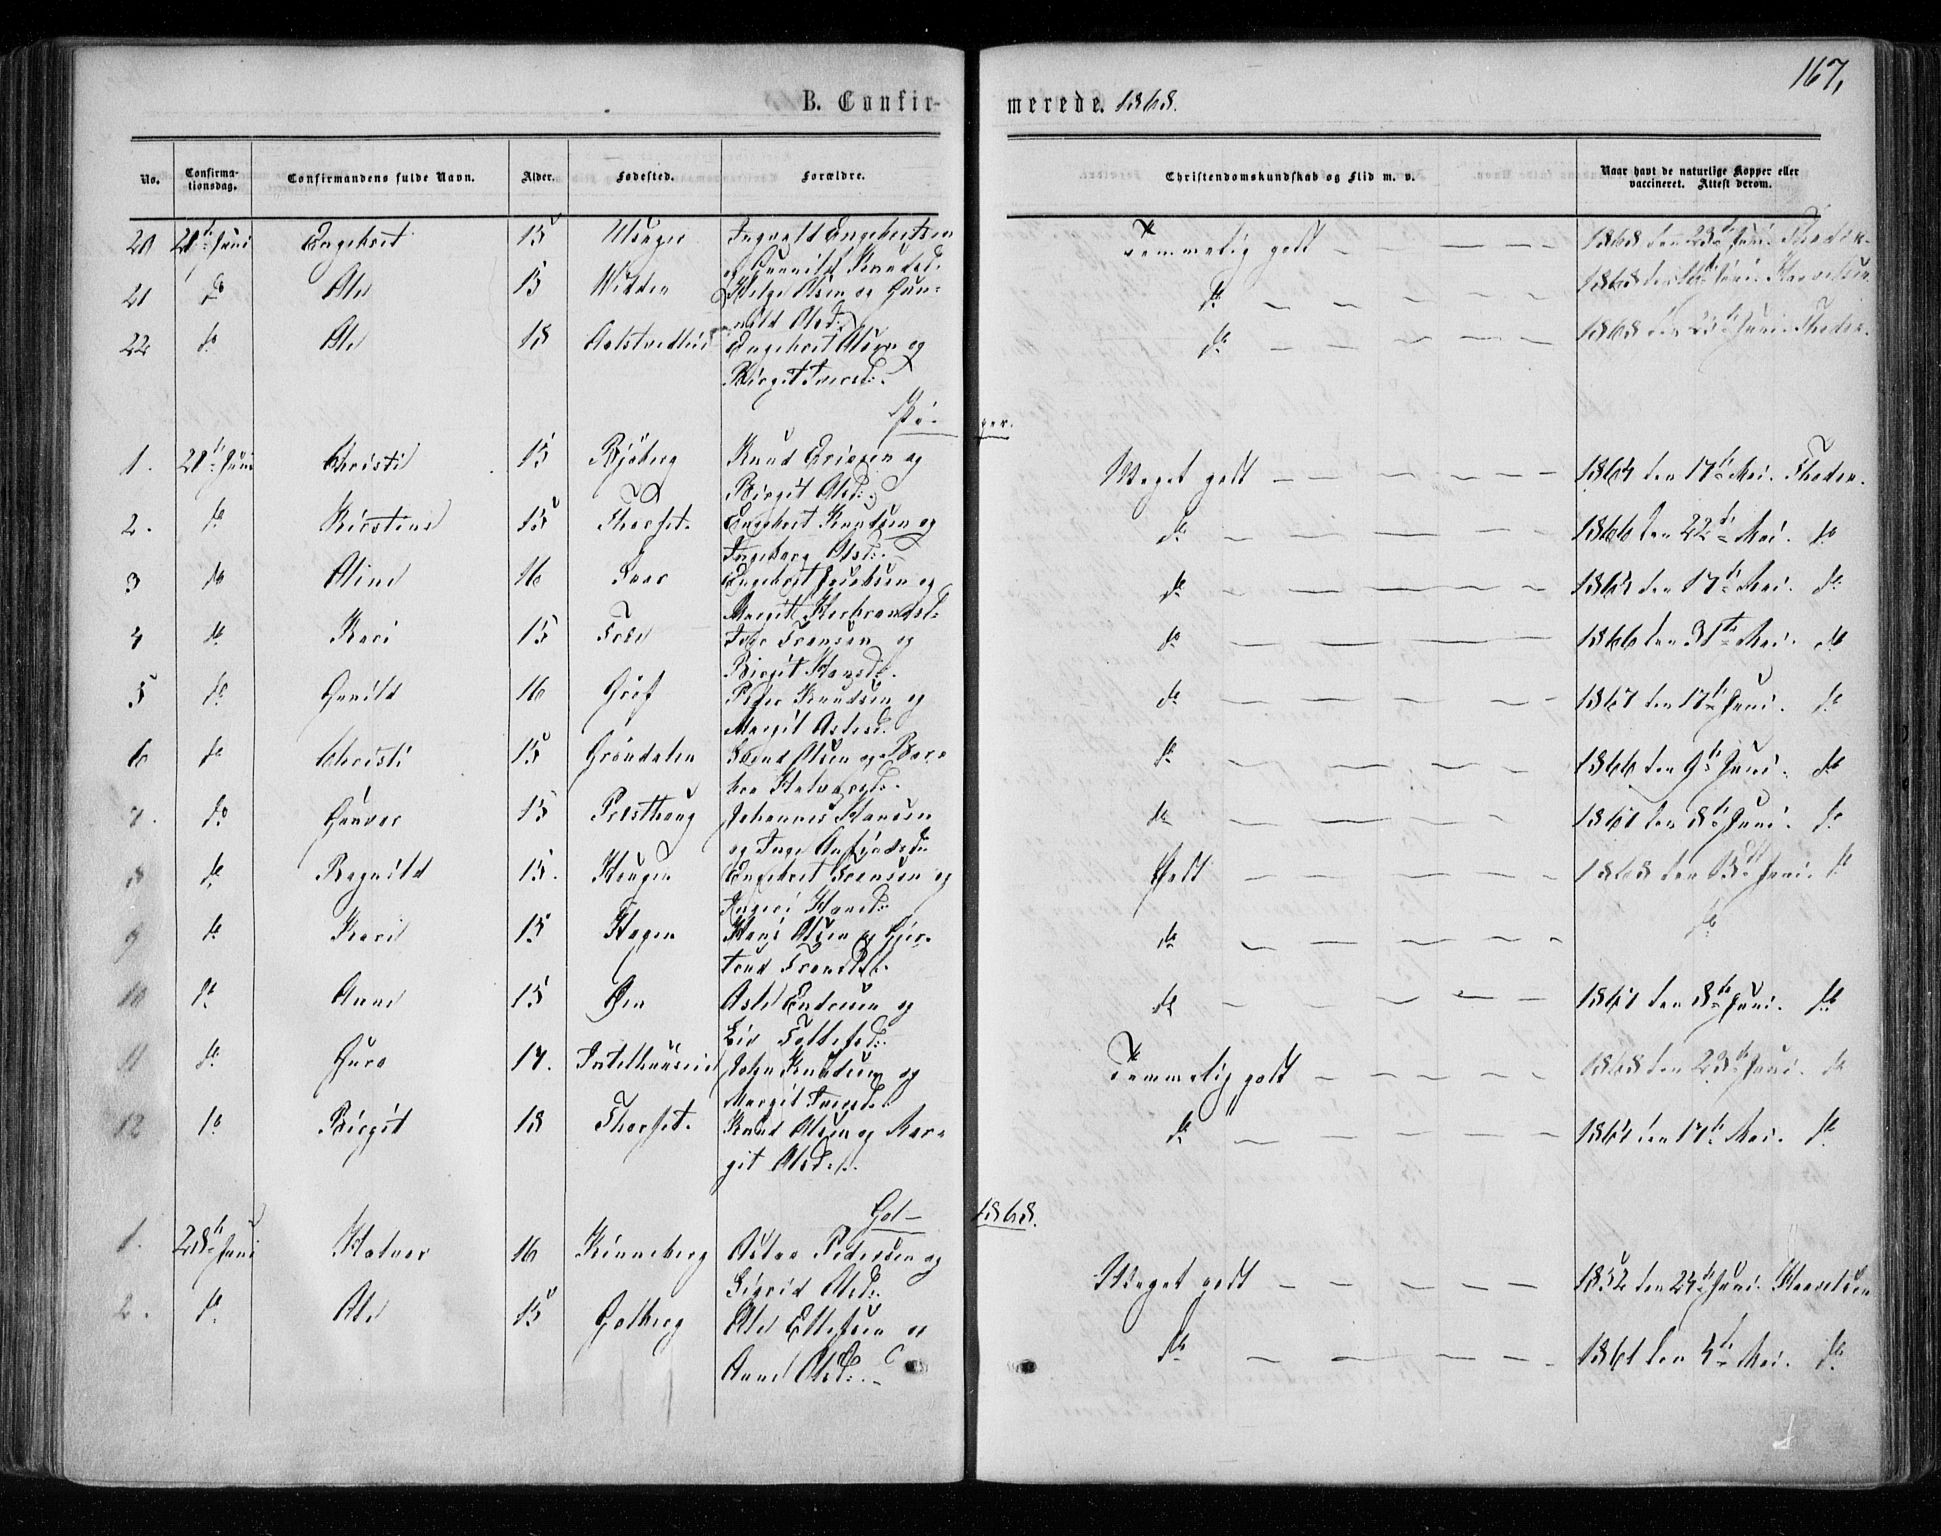 167,
B. Confir-
merede. 1868.
No.
Confirma-
tionsdag.
Confirmandens fulde Navn.
Alder.
Fødested.
Forældre.
Christendomskundskab og Flid m. v.
Naar havt de naturlige Kopper eller
vaccineret. Attest derom.
20 21de Juni Engebret 15 Ingvald Engebretsen Temmelig godt 1868 den 23de Juni.
og Gunnild Knudsd.
21 do Ole 15 Widden Helge Olsen og Gun- do 1868 den Juni.
nild Olsd.
22 do Ole 18 Engebret Olsen og do 1868 den 23de Juni. Theden.
Birgit Iversd.
1. 21de Juni Christi 15 Bjøberg Knud Ericsen og Meget godt 1864 den 17de Mai. Theden.
Birgit Olsd.
2. do Kirstine 15 Thorset. Engebret Knudsen og do 1866 den 22de Mai. do
Ingeborg Olsd.
3 do Oline 16 Engebret Jacobsen og do 1864 den 17de Mai. do
Margit Herbrandsd.
4 do Kari 15 Iver Fransen og do 1866 den 31te Mai. do
Birgit Hansd.
5 do Gunild 16 Peder Knudsen og do 1867 den 17de Juni. do
Margit Aslesd.
6 do Christi 15 Grøndalen Svend Olsen og Bar- do 1866 den 9de Juni. do
bro Halvorsd.
7. do Gunvor 15 Presthoug Johannes Hansen do 1861 den 8de Juni. do
og Inge Arfindsd.
8 do Ragnild 15. Haugen Engebret Svensen og Godt 1868 den Juni. do
Ingeri Hansd.
9 do Kari 15 Hagen Hans Olsen og Gjer- do do
trud Fransd.
10 do Anne 15 Øen Asle Endresen og do 1861 den 8de Juni. do
Liv Tollefsd.
11 do Guro 17. John Knudsen og Temmelig godt 1868 den 23de Juni. do
Margit Iversd.
12 do Birgit 18 Thorset. Knud Olsen og Mar- do 1864 den 17de Mai. do
git Olsd.
Gol- 1868.
1. 28de Juni Halvor 16 Kinneberg Pedersen og Meget godt 1852 den 24de Juni. Haavelsen
Sigrid Olsd.
2. do Ole 15 Golberg Ole Ellefsen og do 1861 den 4de Mai. do
Anne Olsd.